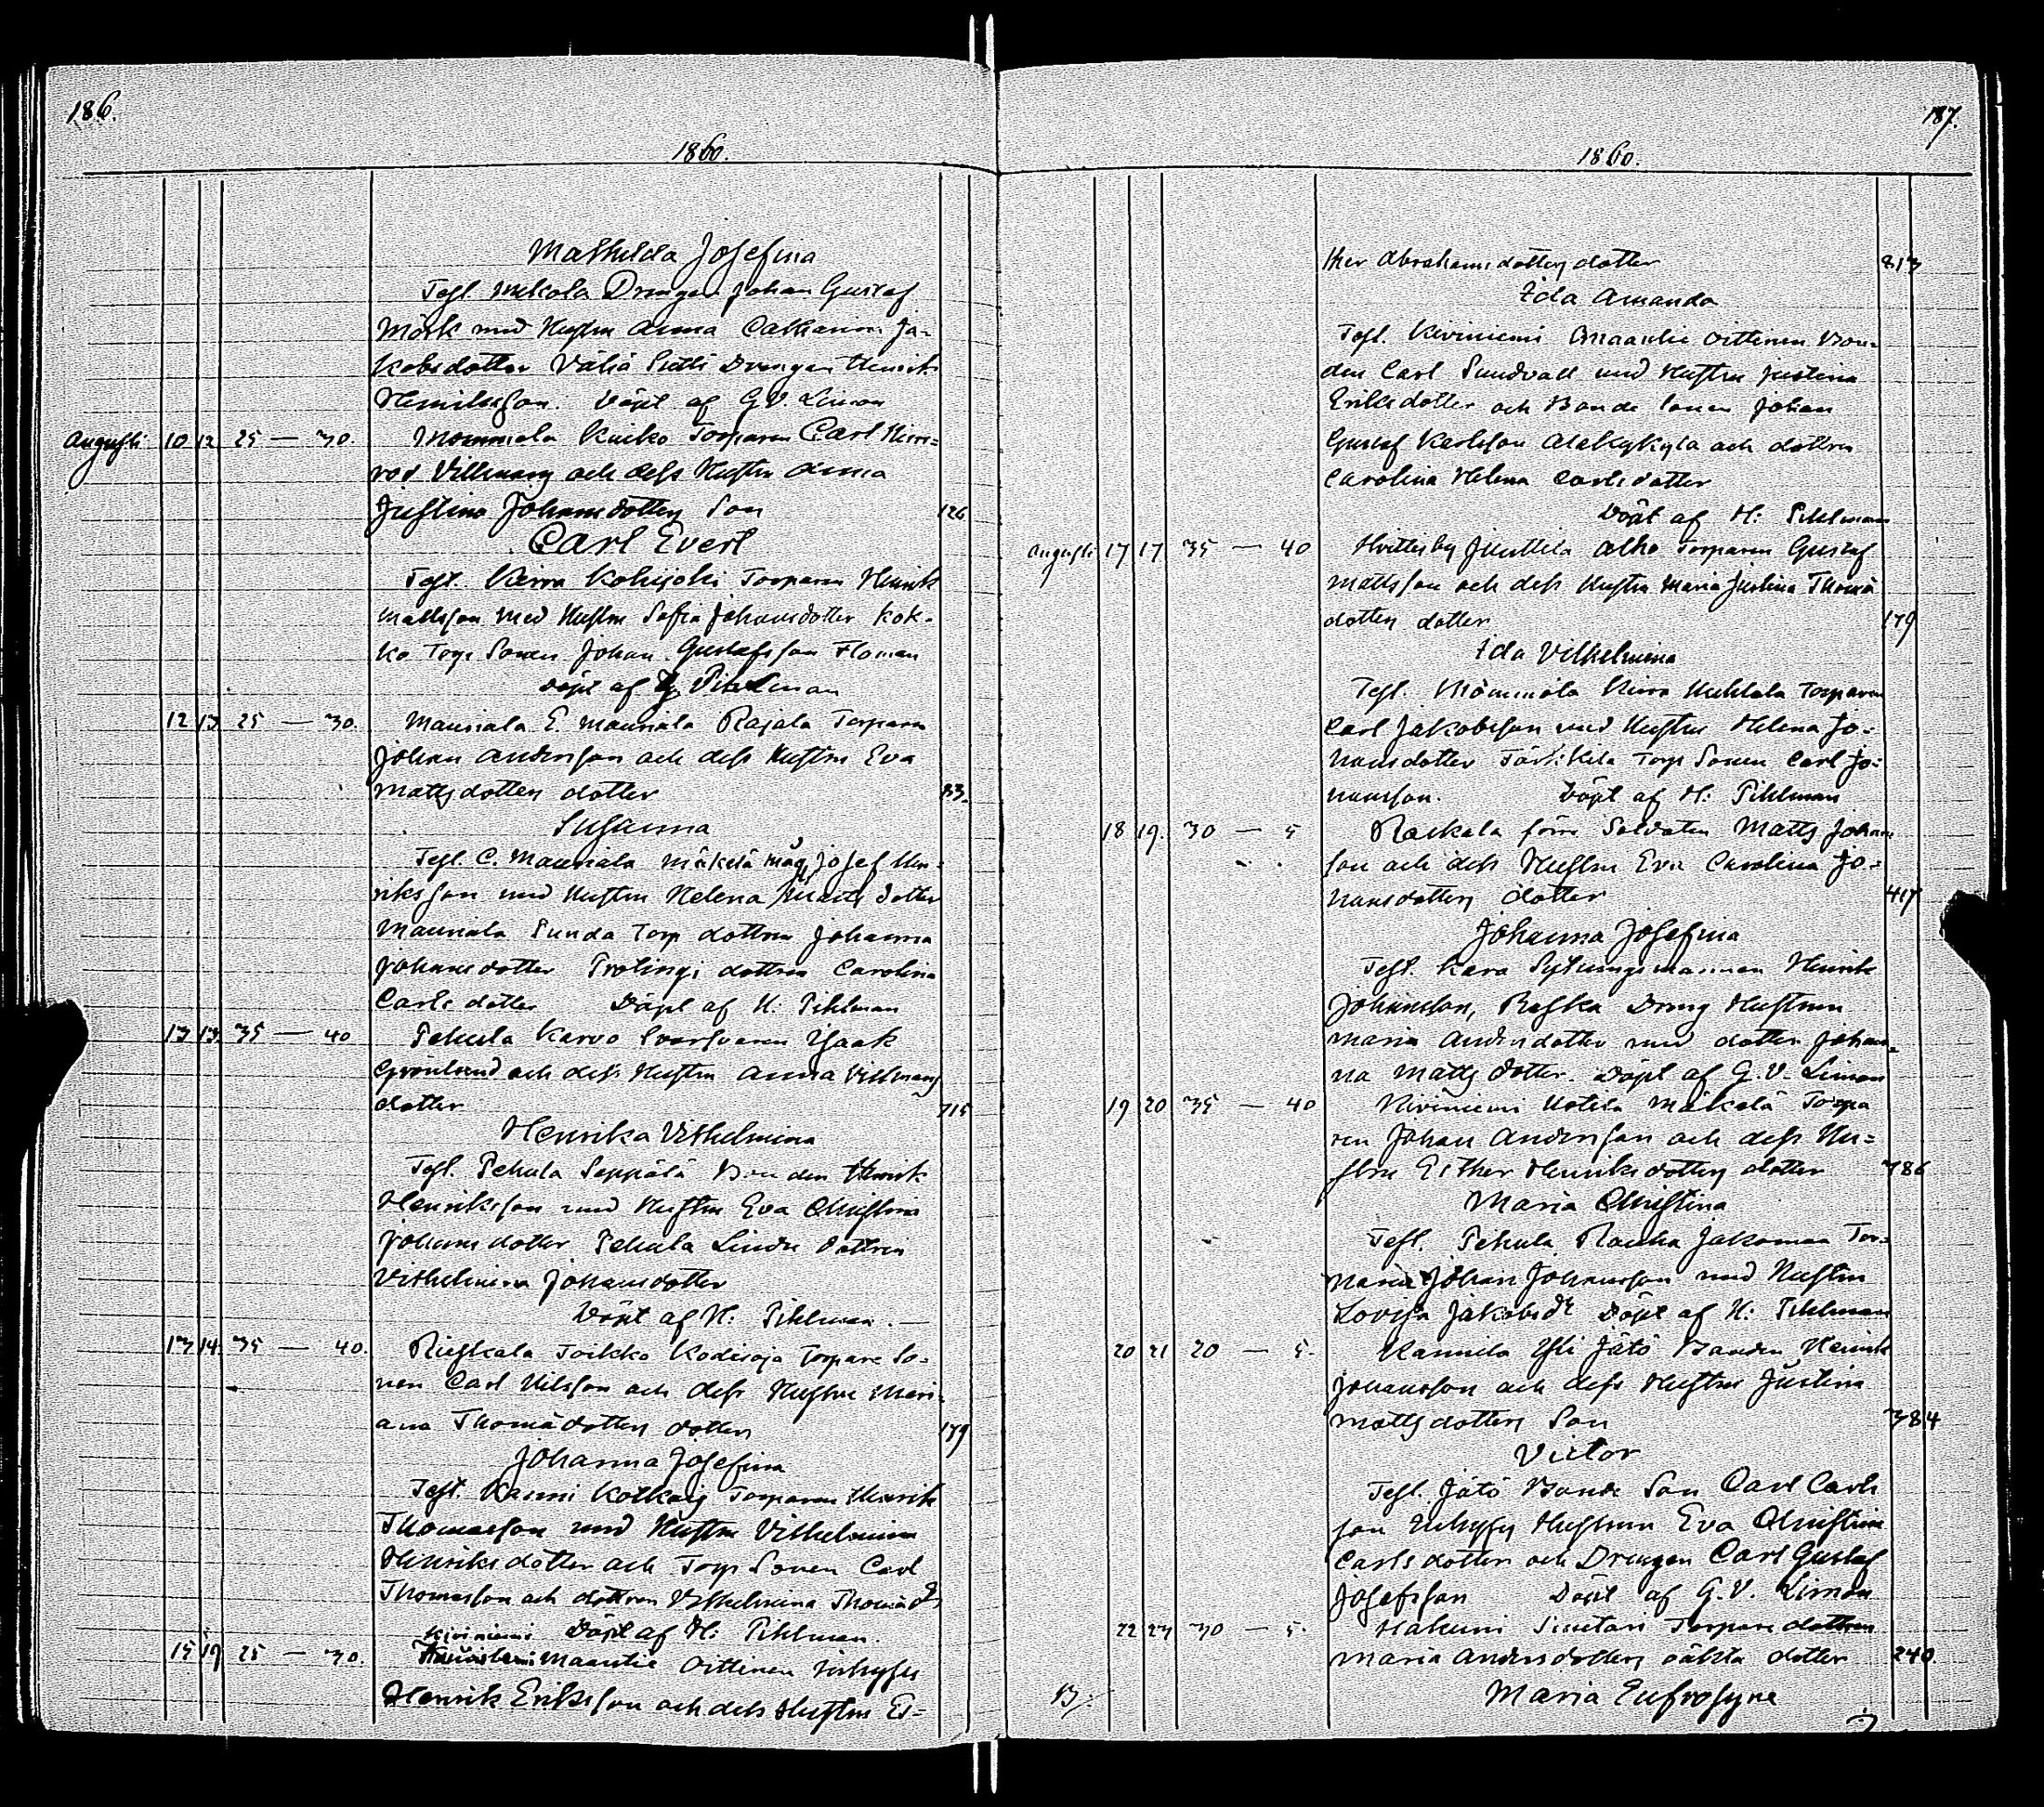 186.
1860.
Mathilda Josefina
Test. Mekola Drengen Johan Gustaf
Mörk med Hustru Anna Catharina Ja-
kobsdotter Väliä Drengen Henrik
Henriksson. Döpt af G.V. Limon
Augusti 10 12 25 — 30. Kuiko Torparen Carl Him-
rod Villmans och dess Hustru Anna
Justina Johansdotters Son 126
Carl Evert
Test. Kirra Kohijoki Torparen Henrik
Mattsson med Hustru Sofia Johansdotter Kok-
ko Torp Sonen Johan Gustafsson Floman
Döpt af Pihlman
12 13 25 — 30. Mauriala E. Mauriala Rajala Torparen
Johan Andersson och dess Hustru Eva
Mattsdotters dotter 83.
Susanna
Test. C. Mauriala Mäkelä måg Josef Hen-
riksson med Hustru Helena Matts dotter
Mauriala Sunda Torp dottren Johanna
Johansdotter Prolingi dottren Carolina
Carls dotter Döpt af H. Pihlman
13 13. 35 — 40 Pehula Karvo Svarfvaren Isaak
Grönlund och dess Hustru Anna Villmans
dotter 715
Henrika Vilhelmina
Test. Pehula Seppälä Bonden Henrik
Henriksson med Hustru Eva Christina
Johansdotter Pehula Lindu dottren
Vilhelmina Johansdotter
Döpt af H: Pihlman. —
13 14. 35 — 40. Rieskala Toikko Kodisoja Torpare So-
nen Carl Nilsson och dess Hustru Mari-
ana Thomædotters dotter 179
Johanna Josefina
Test. Kauni Kolkais Torparen Henrik
Thomasson med Hustru Vilhelmina
Henriksdotter och Torp Sonen Carl
Thomasson och dottren Vilhelmina Thomæ dr
Kiviniemi Döpt af H: Pihlman.
15 19 25 — 30. Maantie Oittinen Inhyses
Henrik Eriksson och dess Hustru Es-
187.
1860.
ther Abrahamsdotters dotter 813
Ida Amanda
Test. Kiviniemi Maantie Oittinen Bon-
den Carl Sundvall med Hustru Justina
Eriksdotter och Bonde Sonen Johan
Gustaf Karlsson Alakykyla och dottren
Carolina Helena Carlsdotter
Döpt af H: Pihlman
Augusti 17 17 35 — 40 Hvittisby Junttila Alho Torparen Gustaf
Mattsson och dess Hustru Maria Justina Thomæ
dotters dotter 179
Ida Vilhelmina
Test. Mömmölä Kirra Torparen
Carl Jakobsson med Hustru Helena Jo-
hansdotter Torp Sonen Carl Jo-
hansson. Döpt af H: Pihlman
18 19. 30 — 5 Raskala förre Soldaten Matts Johans
son och dess Hustru Eva Carolina Jo-
hansdotters dotter 417
Johanna Josefina
Test. Kara Sytningsmannen Henrik
Johansson, Raska Dreng Hustrun
Maria Andersdotter med dotter Johan-
na Matts dotter. Döpt af G.V. Limon
19 20 35 — 40 Kiviniemi Uotila Mäkelä Torpa
ren Johan Andersson och dess Hu-
stru Esther Henriksdotters dotter 786
Maria Christina
Test. Pehula Rauha Jakomaa Tor-
Johan Johansson med Hustru
Lovisa Jakobs dr Döpt af H: Pihlman
20 21 20 — 5. Kannila Yli Jätö Bonden Henrik
Johansson och dess Hustru Justina
Mattsdotters Son 384
Victor
Test. Jätö Bonde Son Carl Carls
son Inhyses Hustrun Eva Christina
Carlsdotter och Drengen Carl Gustaf
Josefsson Döpt af G.V. Limon
22 23 30 — 5. Hakuni Sinitari Torpare dottren
Maria Andersdotters oäkta dotter 240.
B:
Maria Eufrosyne